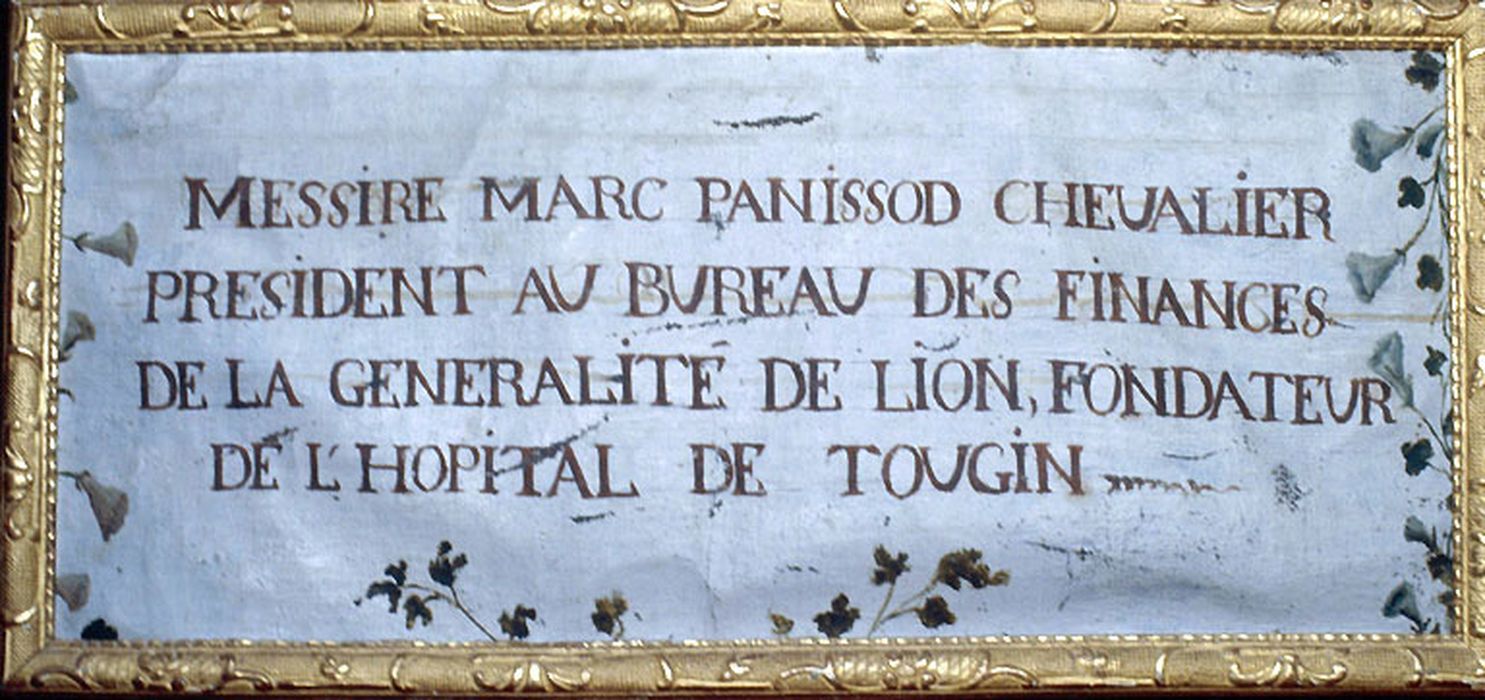 MESSIRE MARC PANISSOD CHEVALIER
PRESIDENT AU BUREAU DES FINANCES
DE LA GENERALITÉ DE LION, FONDATEUR
DE L'HOPITAL DE TOUGIN